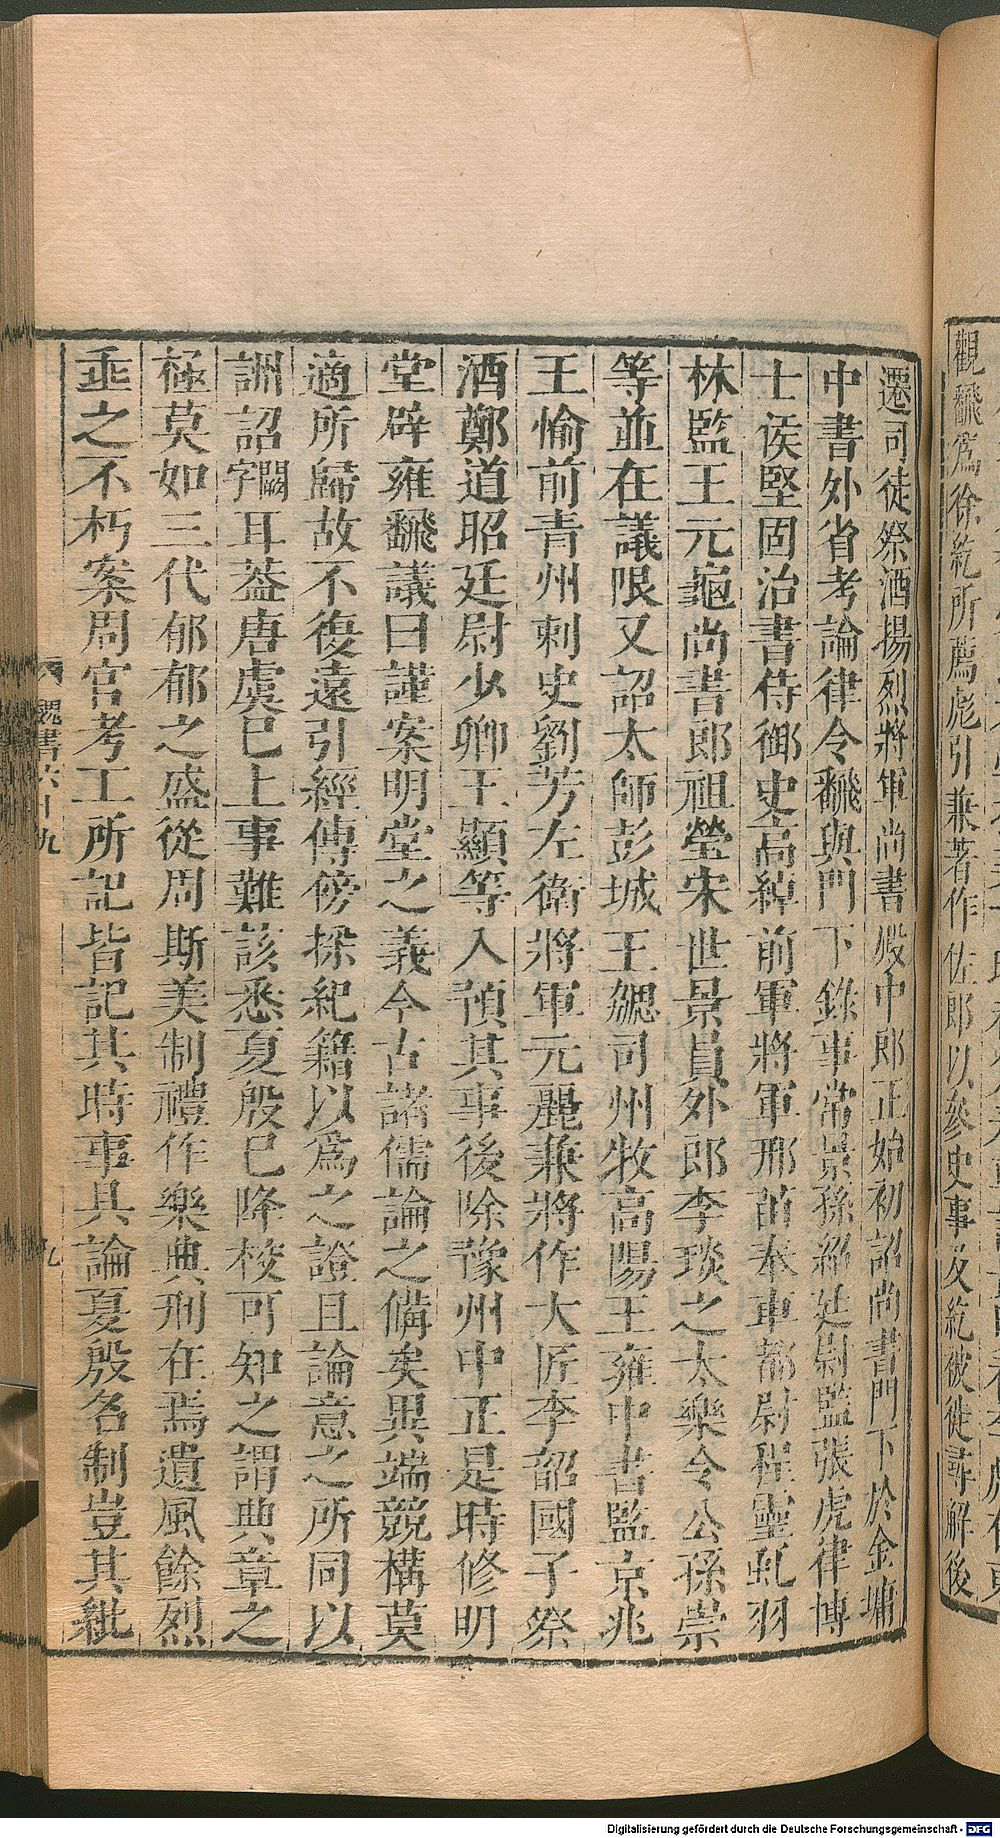 觀飜爲徐紇所薦彪引兼著作佐郎以參史事及紇被徙尋解後
遷司徒祭酒揚烈將軍尚書殿中郎正始初詔尚書門下於金墉
中書外省考論律令飜與門下錄事常景孫紹廷尉監張虎律博
士侯堅固治書侍御史高綽前軍將軍邢苗奉車都尉程靈虬羽
林監王元龜尚書郎祖瑩宋世景員外郎李琰之太樂令公孫崇
等並在議限又詔太師彭城王勰司州牧高陽王雍中書監京兆
王愉前青州刺史劉芳左衛將軍元麗兼將作大匠李韶國子祭
酒鄭道昭廷尉少卿王顯等入預其事後除豫州中正是時修明
堂辟雍飜議曰謹案明堂之義今古諸儒論之備矣異端競構莫
適所歸故不復遠引經傳傍採紀籍以爲之證且論意之所同以
詶詔字闕耳葢唐虞已上事難該悉夏殷已降校可知之謂典章之
極莫如三代郁郁之盛從周斯美制禮作樂典刑在焉遺風餘烈
埀之不朽案周官考工所記皆記其時事具論夏殷名制豈其紕
魏書六十九
九
Digitalisierung gefördert durch die Deutsche Forschungsgemeinschaft - DFG